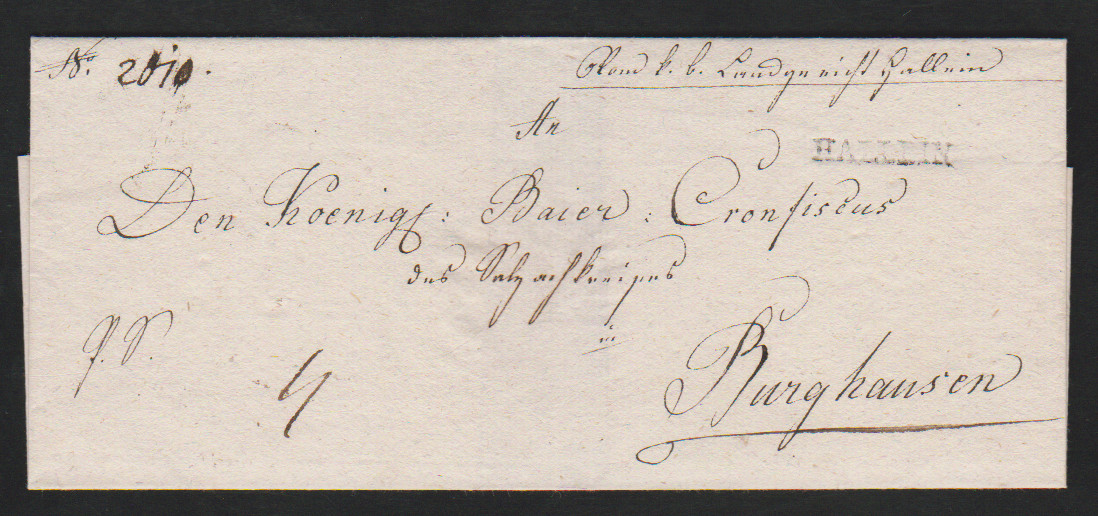 No. 2010.
Vom k. b. Landgericht Hallein
An
HALLEIN
Den Koenigl: Baier: Cronfiscus
des Salzachkreises
in
Burghausen
P. S.
4